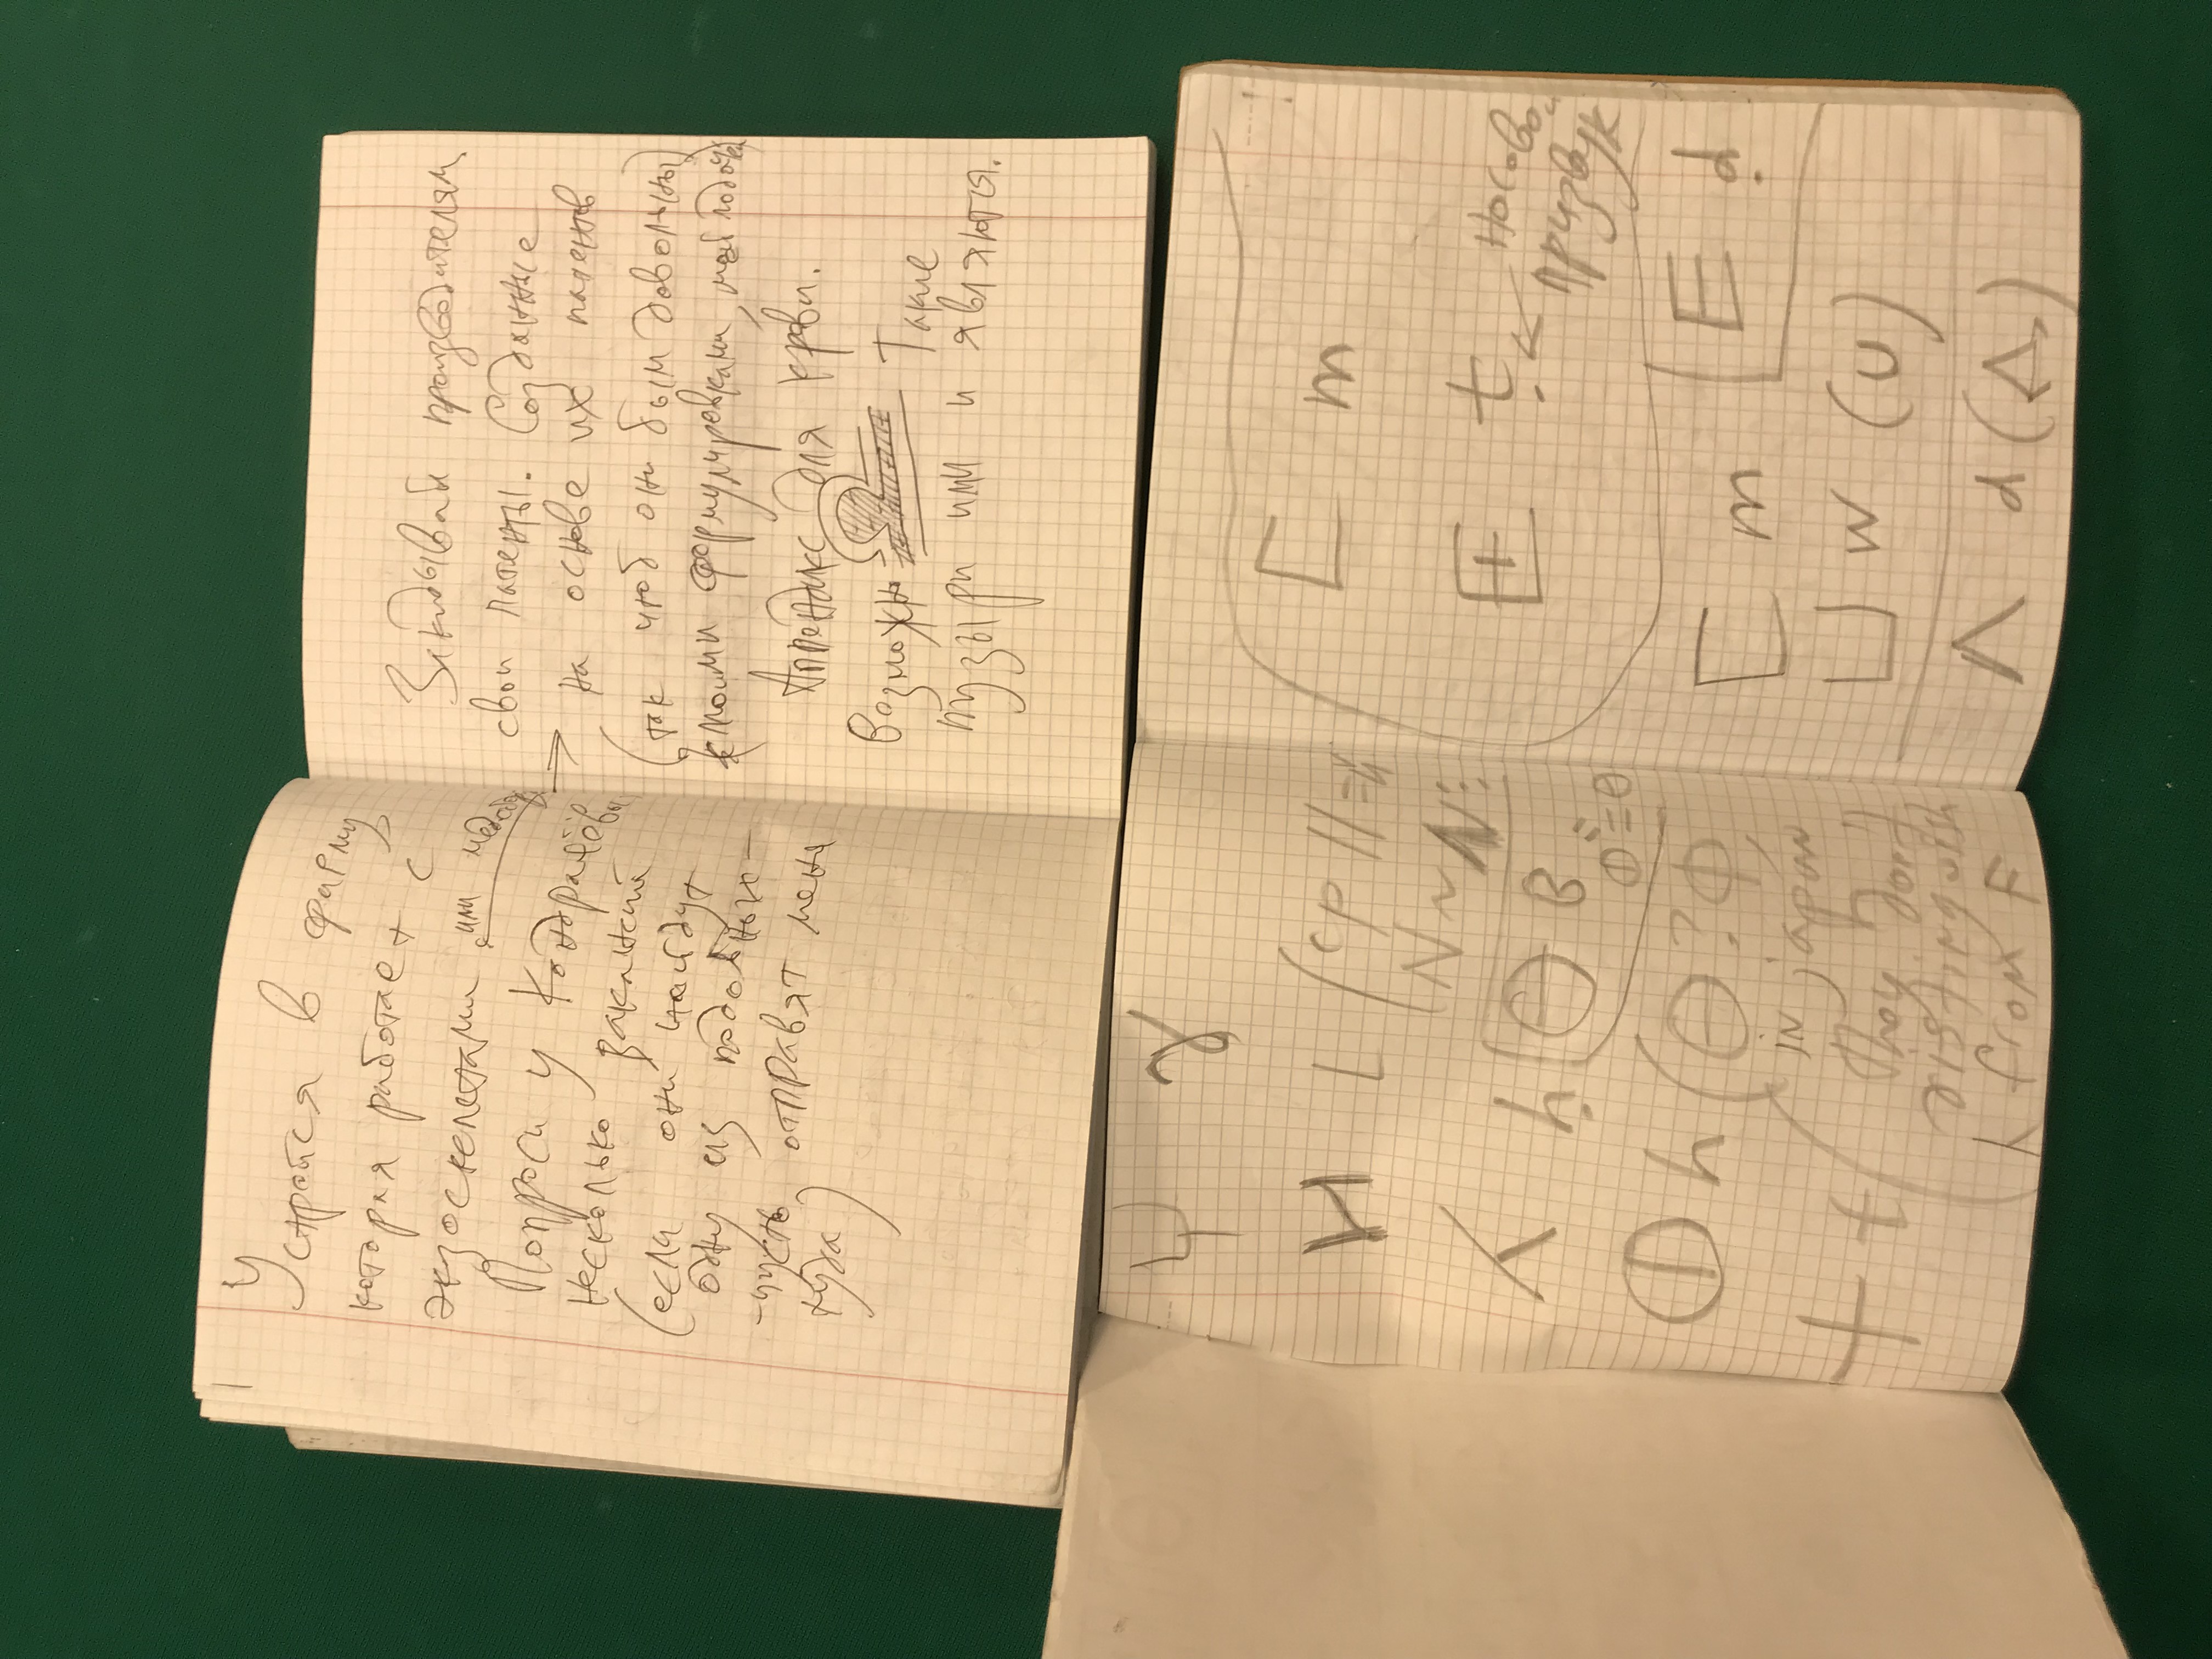 Устройся в фирму,
которая работает с
экзоскелетами или
Попроси у Кондрачёвы
несколько вакансий
(если они найдут
одну из подобных-
-пусть отправят меня
туда)
→
Закидывай производителям
свои патенты. Созданные
на основе их патентов
(так чтоб они были довольны)
моими формулировками, моей подачей
Аппендикс для крови.
Возможно Такие
пузыри ими и являются.
Ψ γ
И L (ср //=и
N~N:
λ ḥ Θ B
Φ"=θ
Φ h (Θ? Φ
in japan
They don't
distinguish
h from F
+ t
[ m
E ṭ ← носовой
призвук
[ m E ḍ
⊔ w (u)
Λ d (Δ)